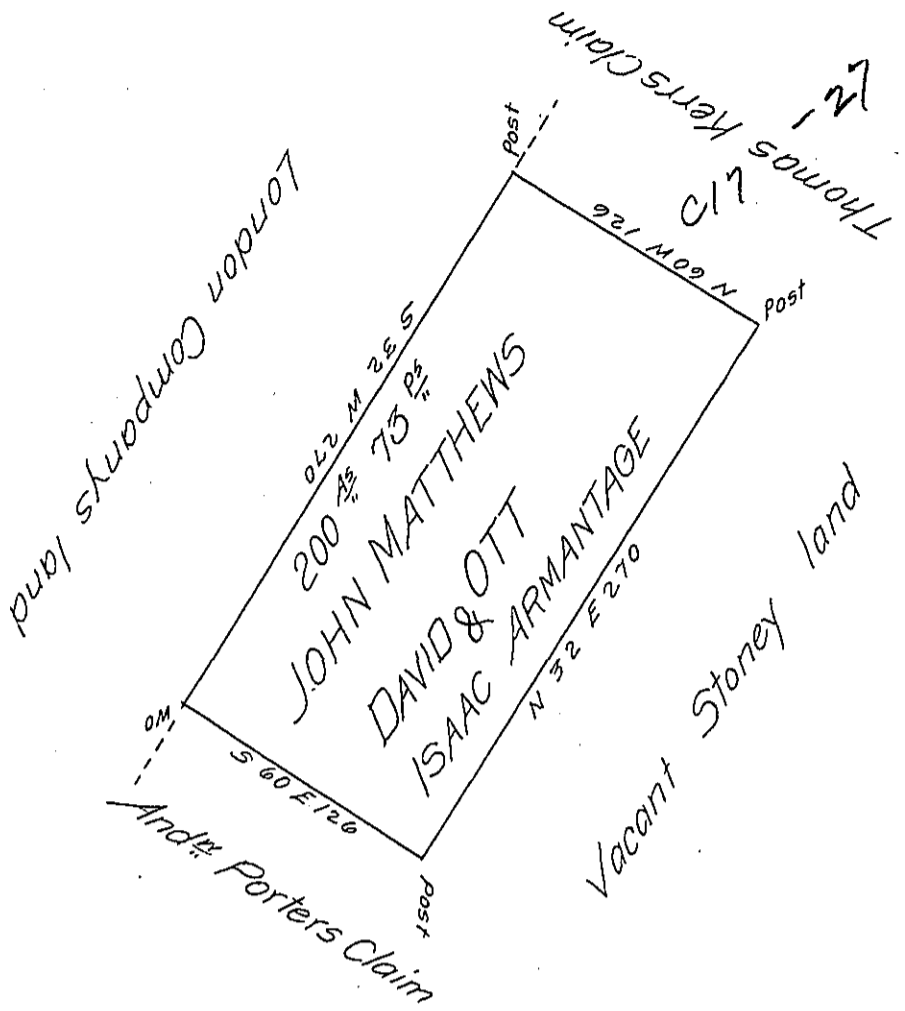 Thomas Kerrs Claim
C17 - 27
London Companys land
Post
N 60 W 126
Post
S 32 W 270
200 As 73 Ps
JOHN MATTHEWS
DAVID OTT
&
ISAAC ARMANTAGE
N 32 E 270
Vacant Stoney land
WO
S 60 E 126
Post
Andw Porters Claim